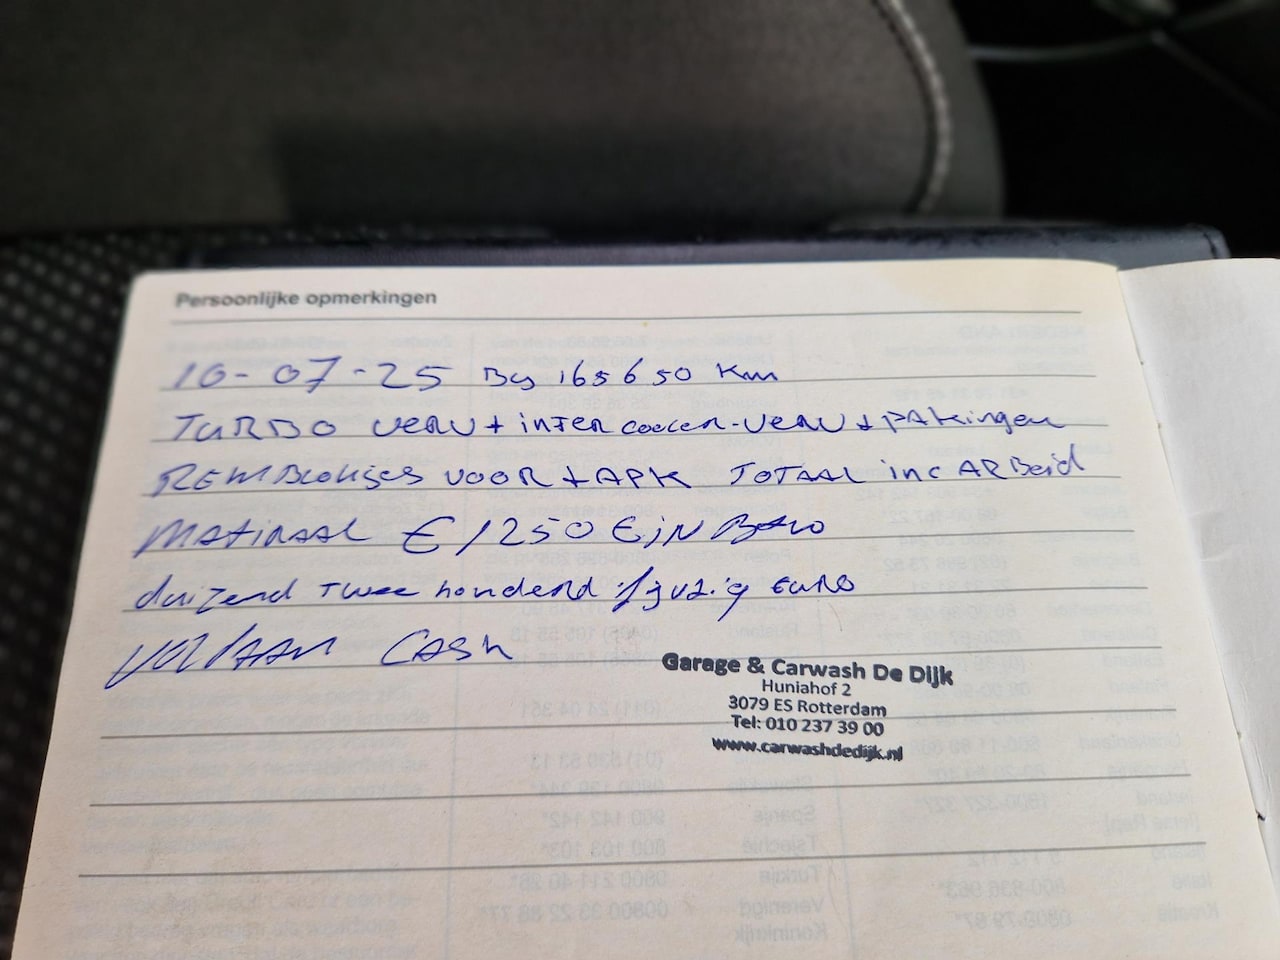 Persoonlijke opmerkingen
10-07-25 By 165650 Km
TURBO VERV + inTER coeler-VERV + PAKingen
REMBLOKjes VOOR + APK TOTAAL inc ARBeid
MATiRAAL € 1250 €
duizend Twee honderd Euro
VOLDAAN CASH
Garage & Carwash De Dijk
Huniahof 2
3079 ES Rotterdam
Tel: 010 237 39 00
www.carwashdedijk.nl